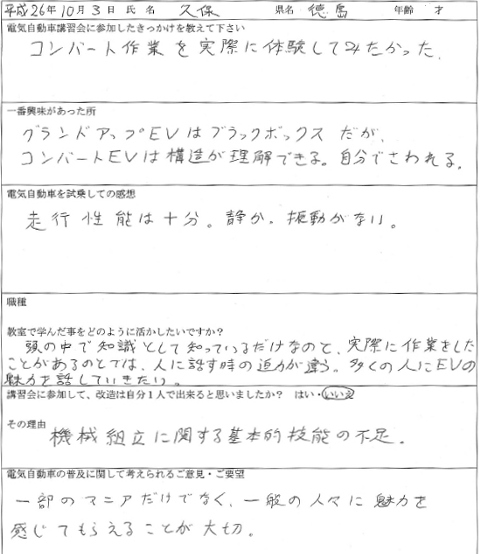 平成26年10月3日 氏名 久保 県名 徳島 年齢 才
電気自動車講習会に参加したきっかけを教えて下さい
コンバート作業を実際に体験してみたかった.
一番興味があった所
グランドアップEVはブラックボックスだが、
コンバートEVは構造が理解できる。自分でさわれる.
電気自動車を試乗しての感想
走行性能は十分。静か、振動がない。
職種
教室で学んだ事をどのように活かしたいですか?
頭の中で知識として知っているだけなのと、実際に作業をした
ことがあるのとでは、人に話す時の迫力が違う。多くの人にEVの
魅力を話していきたい。
講習会に参加して、改造は自分1人で出来ると思いましたか? はい・いいえ
その理由
機械組立に関する基本的技能の不足.
電気自動車の普及に関して考えられるご意見・ご要望
一部のマニアだけでなく、一般の人々に魅力を
感じてもらえることが大切。